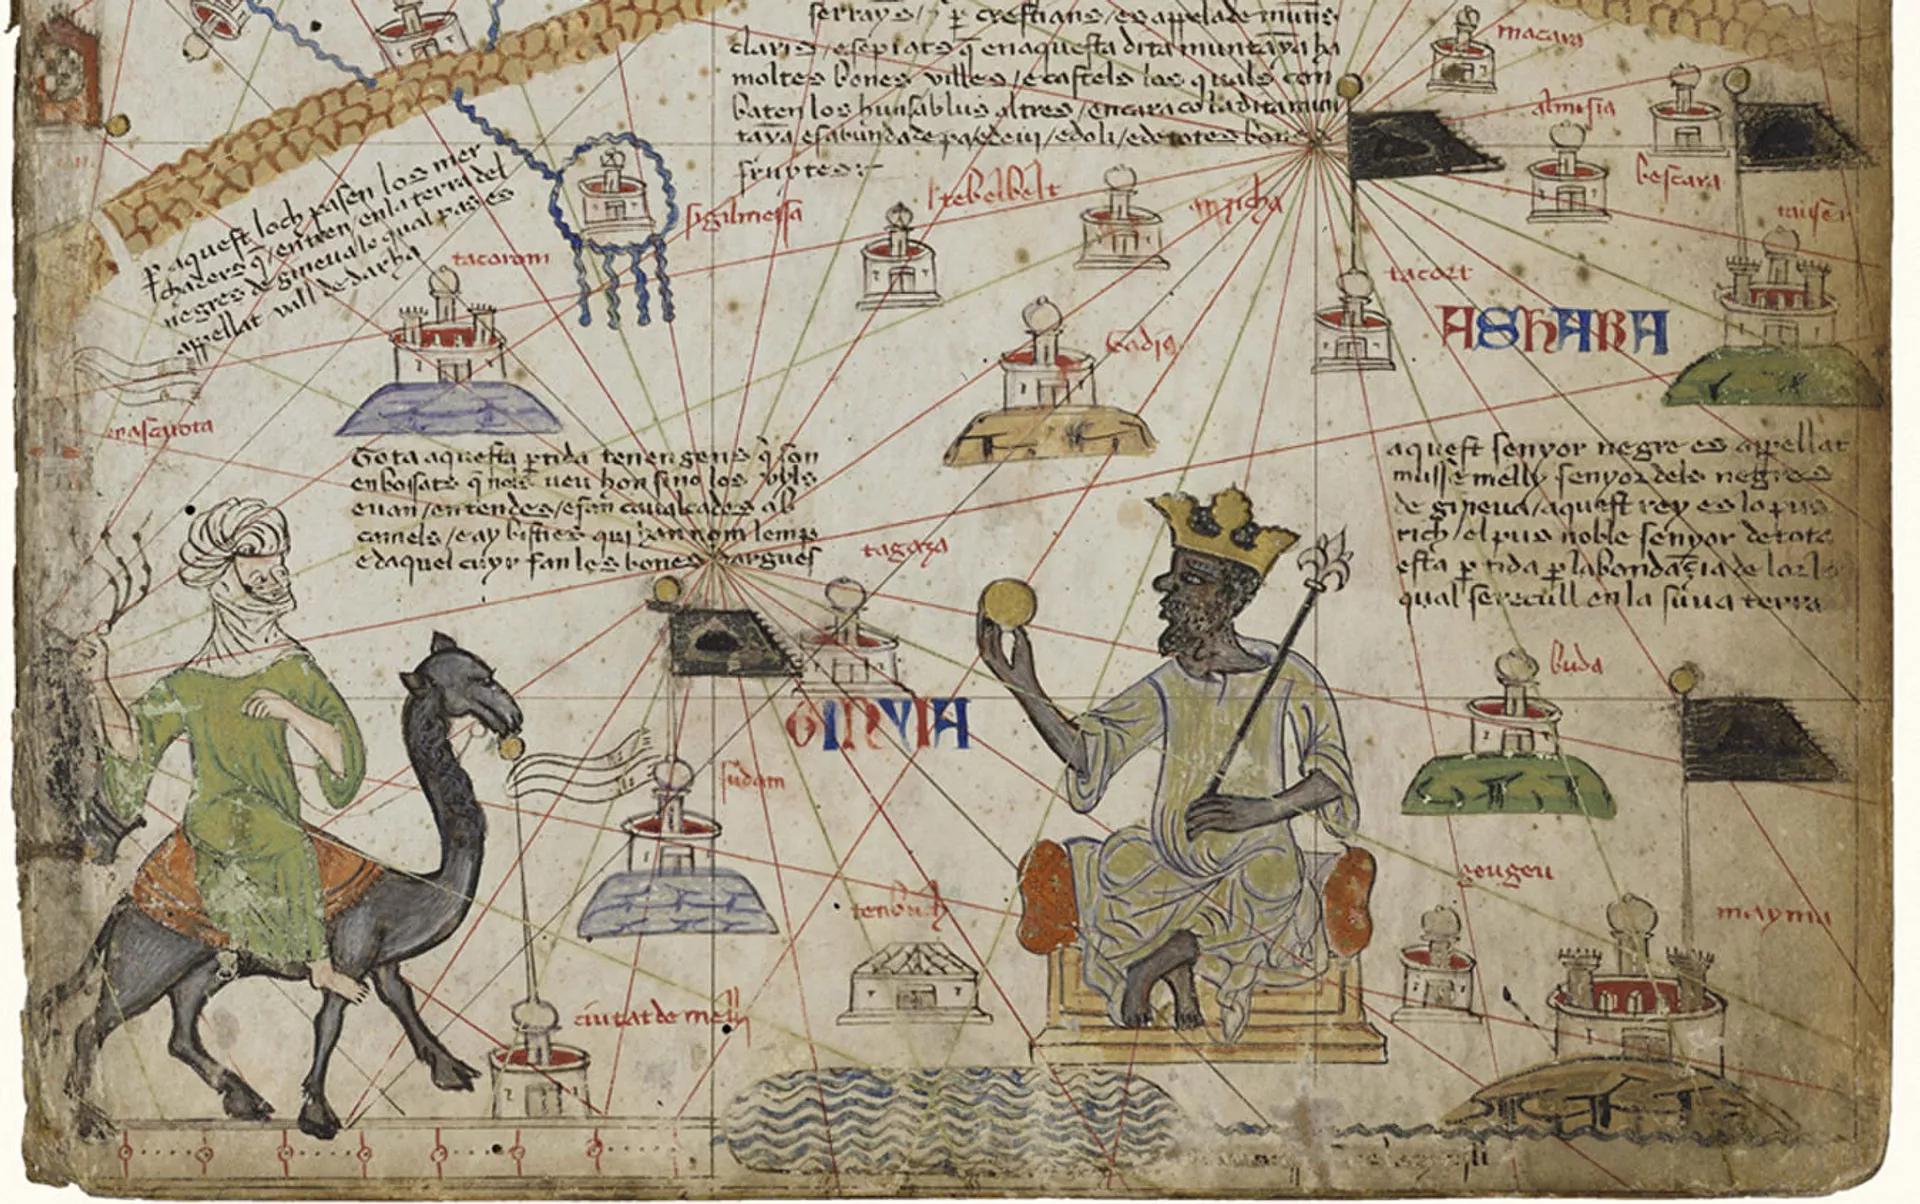 serrayns / p crestians / es apelade muns
claris / e sepiats q en aquesta dita muntaya ha
moltes bones villes / e castels los quals con
baten los huns ab lus altres / encara co la dita mun
taya es abundade pa e de vi / e d oli / e de totes bones
fruytes:-
macara
almisia
bescara
p aquest loch pasen los mer
chaders q entren en la terra del
negres de gineua lo qual pas es
appellat vall de darha
sigilmessa
tacorom
tebelbelt
anzicha
tacort
ASHARA
Tota aquesta p tida tenen gens q son
enbossats q nols veu hon sino los uyls
e uan en tendes / e fan caualcades ab
camels / e ay bisties qui han nom lemp
e daquel cuyr fan les bones dargues
aquest senyor negre es appellat
musse melly senyor dels negres
de gineua / aquest rey es lo pus
rich / el pus noble senyor de tota
esta p tida p labondaçia de lor lo
qual se recull en la suua terra
tagaza
GINYIA
sudam
buda
tenbuch
geugeu
mayma
ciutat de melly